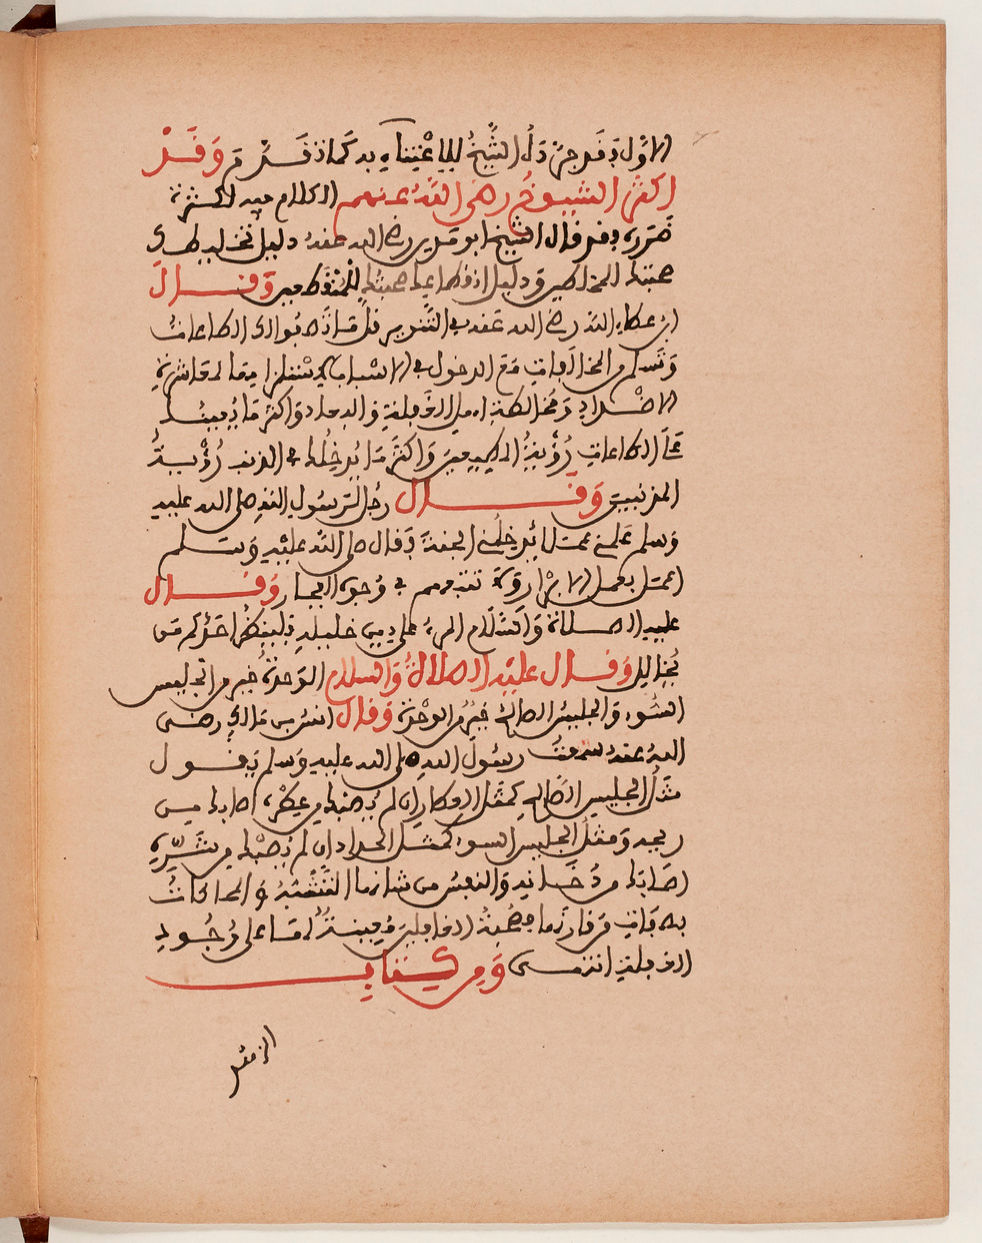 الاول فقد جرد له الشيخ للاعتناء به كما تقدم وقد
اكثر الشيوخ رضي الله عنهم الكلام فيه لكثرة
ضرره فقد قال الشيخ ابو مدين رضي الله عنه دليل تخليطك
صحبتك للمخلطين ودليل انقطاعك صحبتك للمنقطعين وقال
ابن عطاء الله رضي الله عنه في التنوير قل ما تصفوا لك الطاعات
وتسلم من المخالفات مع الدخول في الاسباب لاستلزامها لمعاشرة
الاضداد ومخالطة اهل الغفلة والبعاد واكثر ما يعينك
على الطاعات رؤية المطيعين واكثر ما يدخلك في الذنب رؤية
المذنبين وقال رجل لرسول الله صلى الله عليه
وسلم علمني عملا يدخلني الجنة فقال صلى الله عليه وسلم
وجوه الفجار وقال
عليه الصلاة والسلام المرء على دين خليله فلينظر احدكم من
يخالل وقال عليه الصلاة والسلام الوحدة خير من الجليس
السوء والجليس الصالح خير من الوحدة وقال انس بن مالك رضى
الله عنه سمعت رسول الله صلى الله عليه وسلم يقول
مثل الجليس الصالح كمثل العطار ان لم يصبك من عطره اصابك من
ريحه ومثل الجليس السوء كمثل الحداد ان لم يصبك من شرره
اصابك من دخانه والنفس من شانها التشبه والمحاكات
بصفات من قارنها فصحبة الغافلين معينة لها على وجود
الغفلة انتهى ومن كتاب